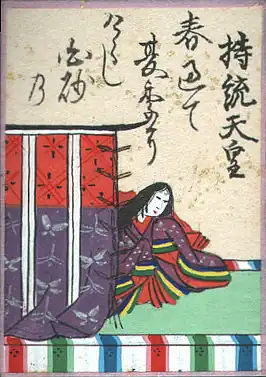 持統天皇
春過て
夏来にけ
らし
白砂
乃